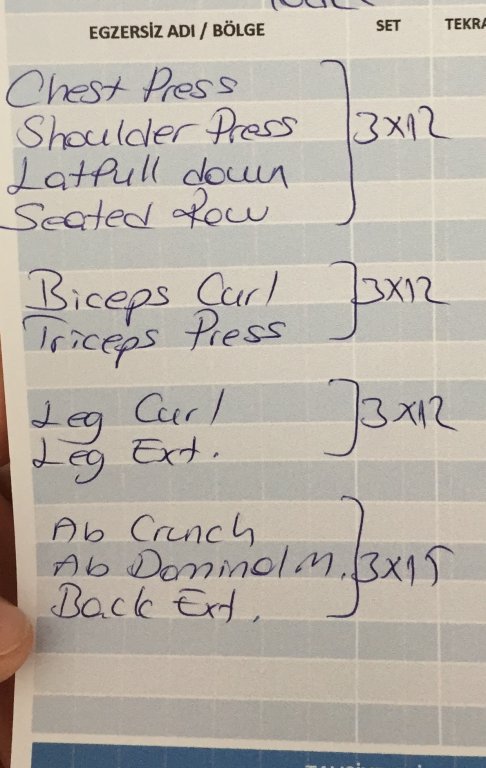 EGZERSİZ ADI / BÖLGE SET TEKRA
Chest Press
Shoulder Press 3x12
Latpull down
Seated Row
Biceps Curl 3x12
Triceps Press
Leg Curl 3x12
Leg Ext.
Ab Crunch
Ab Dominal M. 3x15
Back Ext.